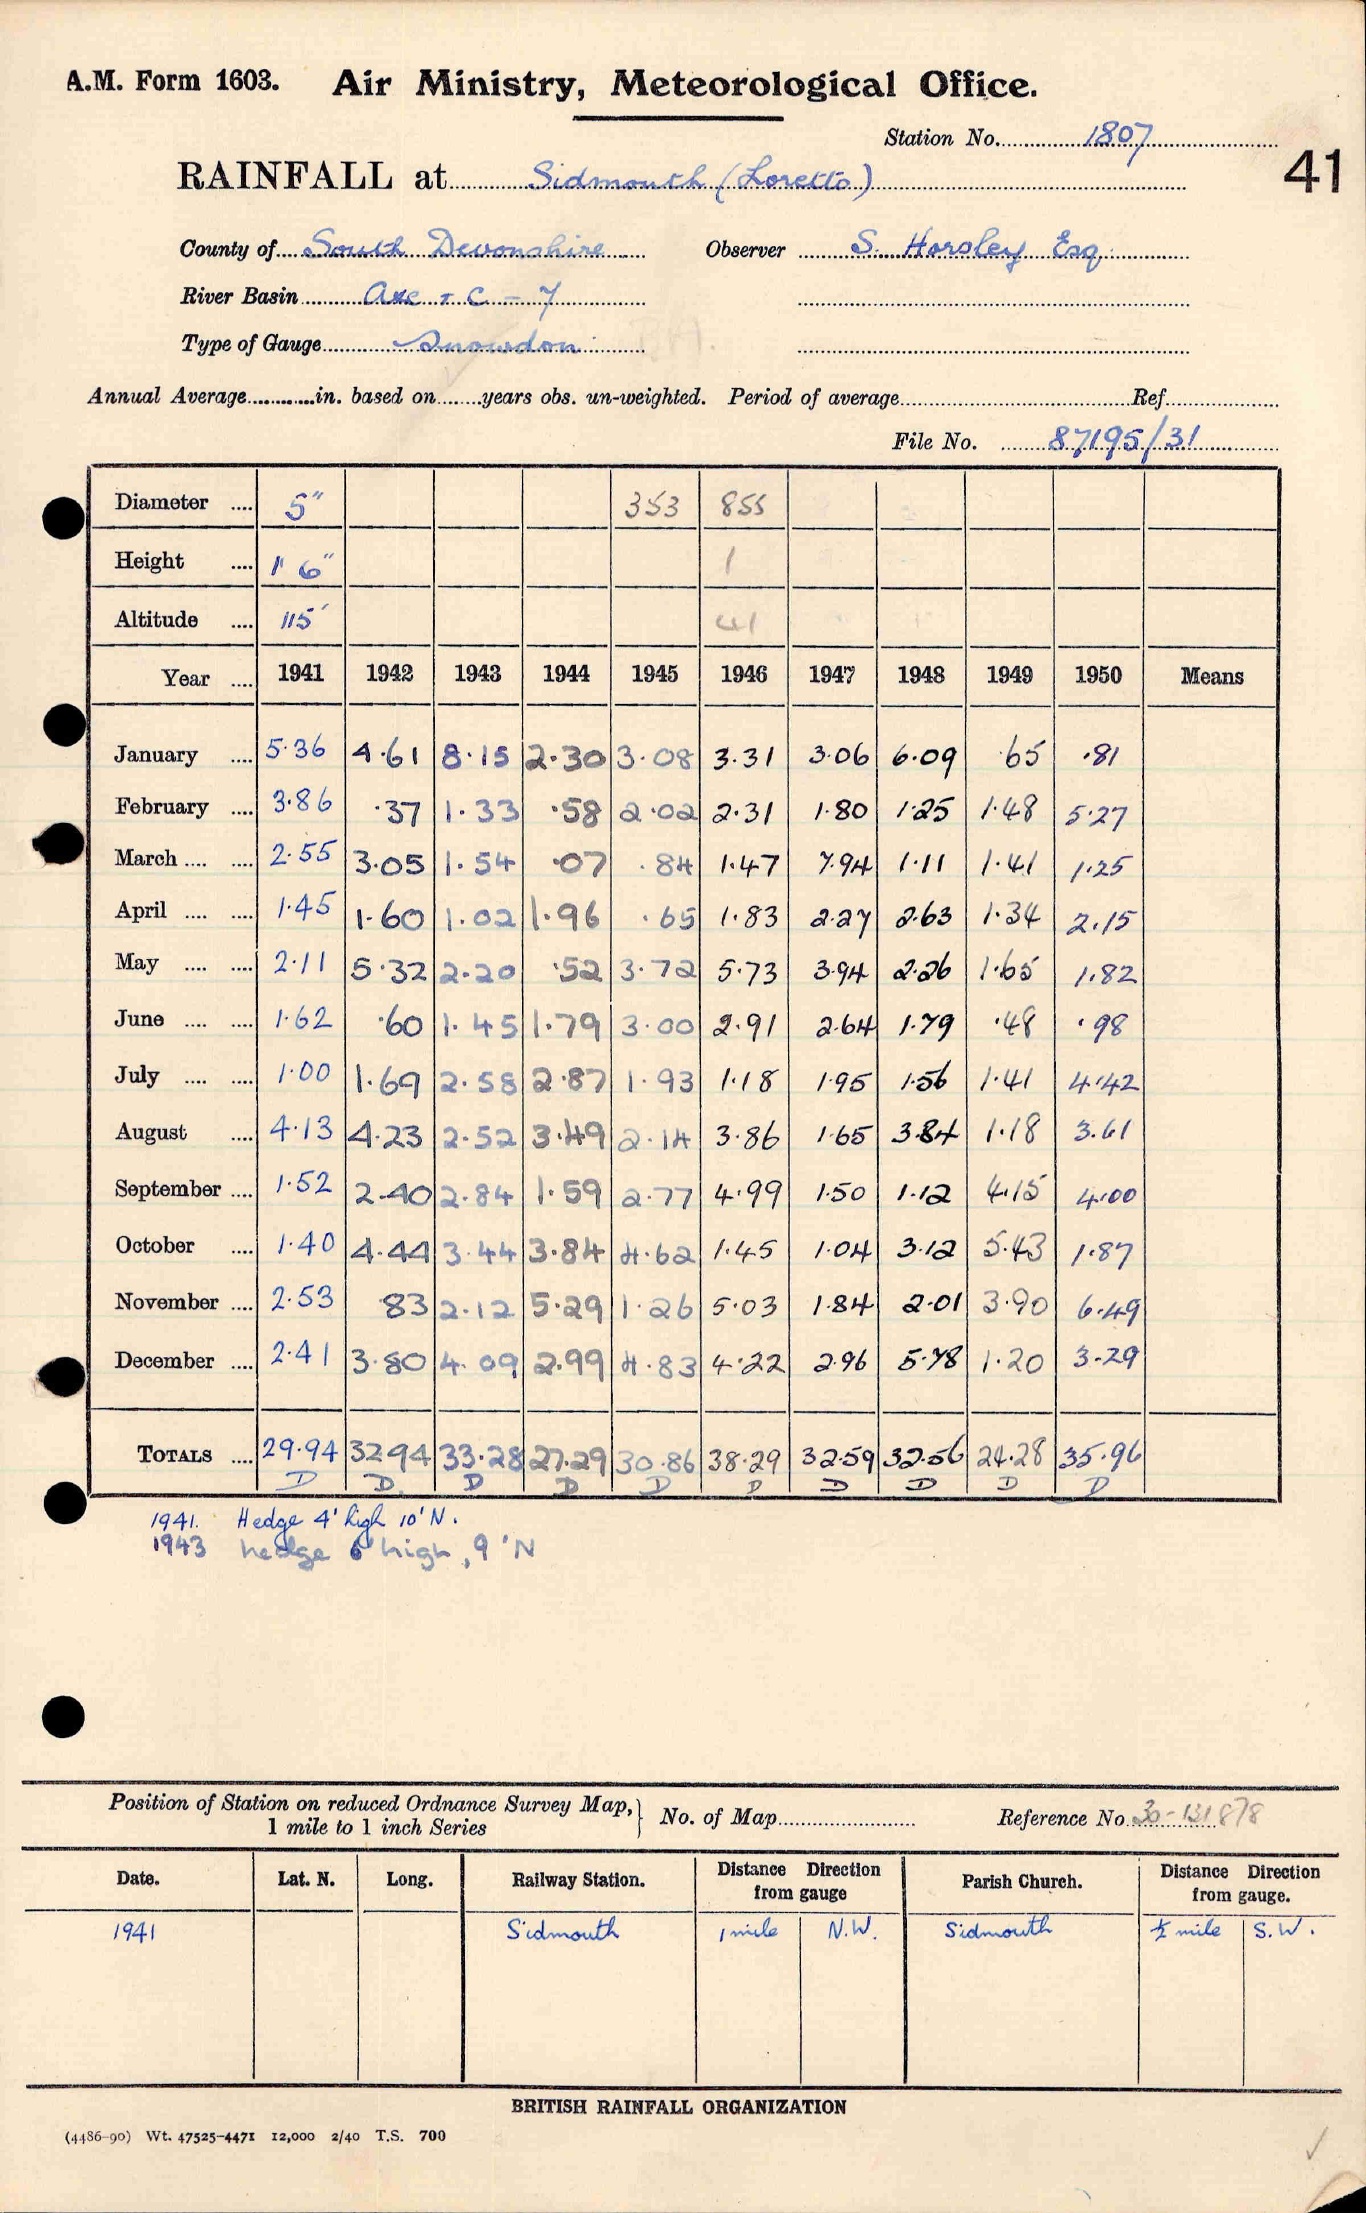 A.M. Form 1603. Air Ministry, Meteorological Office.
Station No. 1807
41
RAINFALL at Sidmouth (Loretto)
County of South Devonshire Observer S. Horsley Esq.
River Basin Axe + C - 7
Type of Gauge Snowdon
Annual Average in. based on years obs. un-weighted. Period of average Ref.
File No. 87195/31
Diameter 5" 353 855
Height 1' 6" 1
Altitude 115' 41
Year 1941 1942 1943 1944 1945 1946 1947 1948 1949 1950 Means
January 5.36 4.61 8.15 2.30 3.08 3.31 3.06 6.09 .65 .81
February 3.86 .37 1.33 .58 2.02 2.31 1.80 1.25 1.48 5.27
March 2.55 3.05 1.54 .07 .84 1.47 7.94 1.11 1.41 1.25
April 1.45 1.60 1.02 1.96 .65 1.83 2.27 2.63 1.34 2.15
May 2.11 5.32 2.20 .52 3.72 5.73 3.94 2.26 1.65 1.82
June 1.62 .60 1.45 1.79 3.00 2.91 2.64 1.79 .48 .98
July 1.00 1.69 2.58 2.87 1.93 1.18 1.95 1.56 1.41 4.42
August 4.13 4.23 2.52 3.49 2.14 3.86 1.65 3.84 1.18 3.61
September 1.52 2.40 2.84 1.59 2.77 4.99 1.50 1.12 4.15 4.00
October 1.40 4.44 3.44 3.84 4.62 1.45 1.04 3.12 5.43 1.87
November 2.53 .83 2.12 5.29 1.26 5.03 1.84 2.01 3.90 6.49
December 2.41 3.80 4.09 2.99 4.83 4.22 2.96 5.78 1.20 3.29
TOTALS 29.94 32.94 33.28 27.29 30.86 38.29 32.59 32.56 24.28 35.96
D D D D D D D D D D
1941. Hedge 4' high 10' N.
1943 hedge 6' high, 9' N
Position of Station on reduced Ordnance Survey Map, 1 mile to 1 inch Series } No. of Map Reference No 30-131878
Date. Lat. N. Long. Railway Station. Distance Direction from gauge Parish Church. Distance Direction from gauge.
1941 Sidmouth 1 mile N.W. Sidmouth ½ mile S.W.
BRITISH RAINFALL ORGANIZATION
(4486-90) Wt. 47525-4471 12,000 2/40 T.S. 700